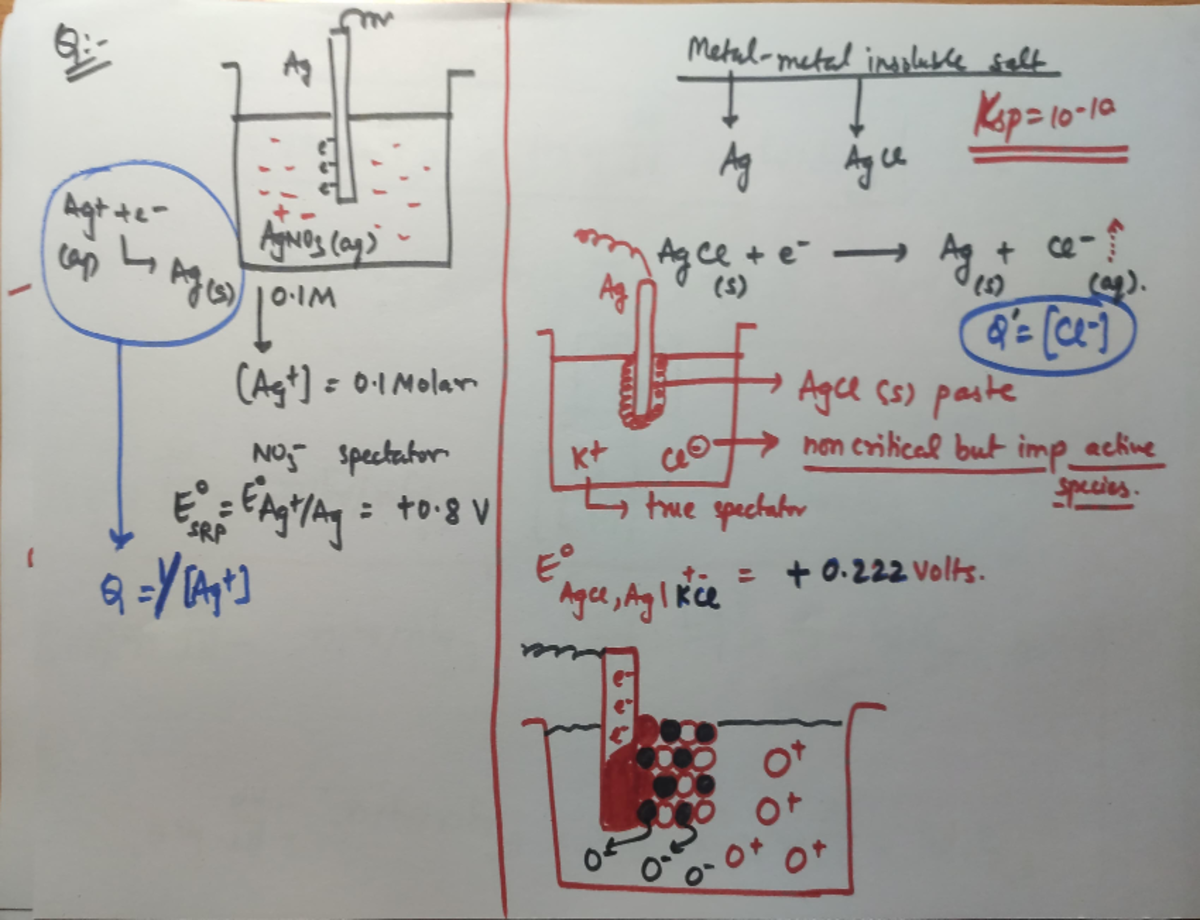 Q:-
Ag
e-
e-
e-
AgNO3(aq)
Ag+ + e-
(aq)
Ag(s)
0.1M
[Ag+] = 0.1 Molar
NO3- spectator
E°SRP = E°Ag+/Ag = +0.8 V
Q = 1/[Ag+]
Metal-metal insoluble salt
Ag
AgCl
Ksp = 10-10
AgCl + e- → Ag + Cl-
(s) (s) (aq).
Q' = [Cl-]
Ag
AgCl (s) paste
K+
Cl⊖
non critical but imp active
species.
true spectator
E°AgCl, Ag | K+Cl- = + 0.222 volts.
e-
e-
e-
O+
O+
O- O- O- O+ O+